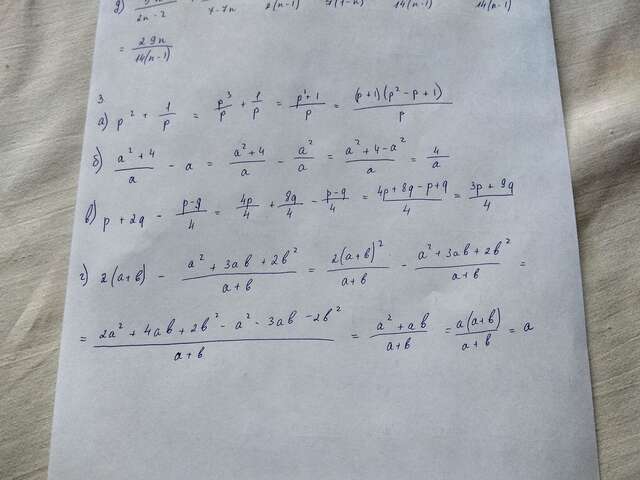 д) 2n-2 7-7n 2(n-1) 7(1-n) 14(n-1) 14(n-1)
= 29n/14(n-1)
3.
а) p² + 1/p = p³/p + 1/p = p³+1/p = (p+1)(p²-p+1)/p
б) a²+4/a - a = a²+4/a - a²/a = a²+4-a²/a = 4/a
в) p+2q - p-q/4 = 4p/4 + 8q/4 - p-q/4 = 4p+8q-p+q/4 = 3p+9q/4
г) 2(a+b) - a²+3ab+2b²/a+b = 2(a+b)²/a+b - a²+3ab+2b²/a+b =
= 2a²+4ab+2b²-a²-3ab-2b²/a+b = a²+ab/a+b = a(a+b)/a+b = a